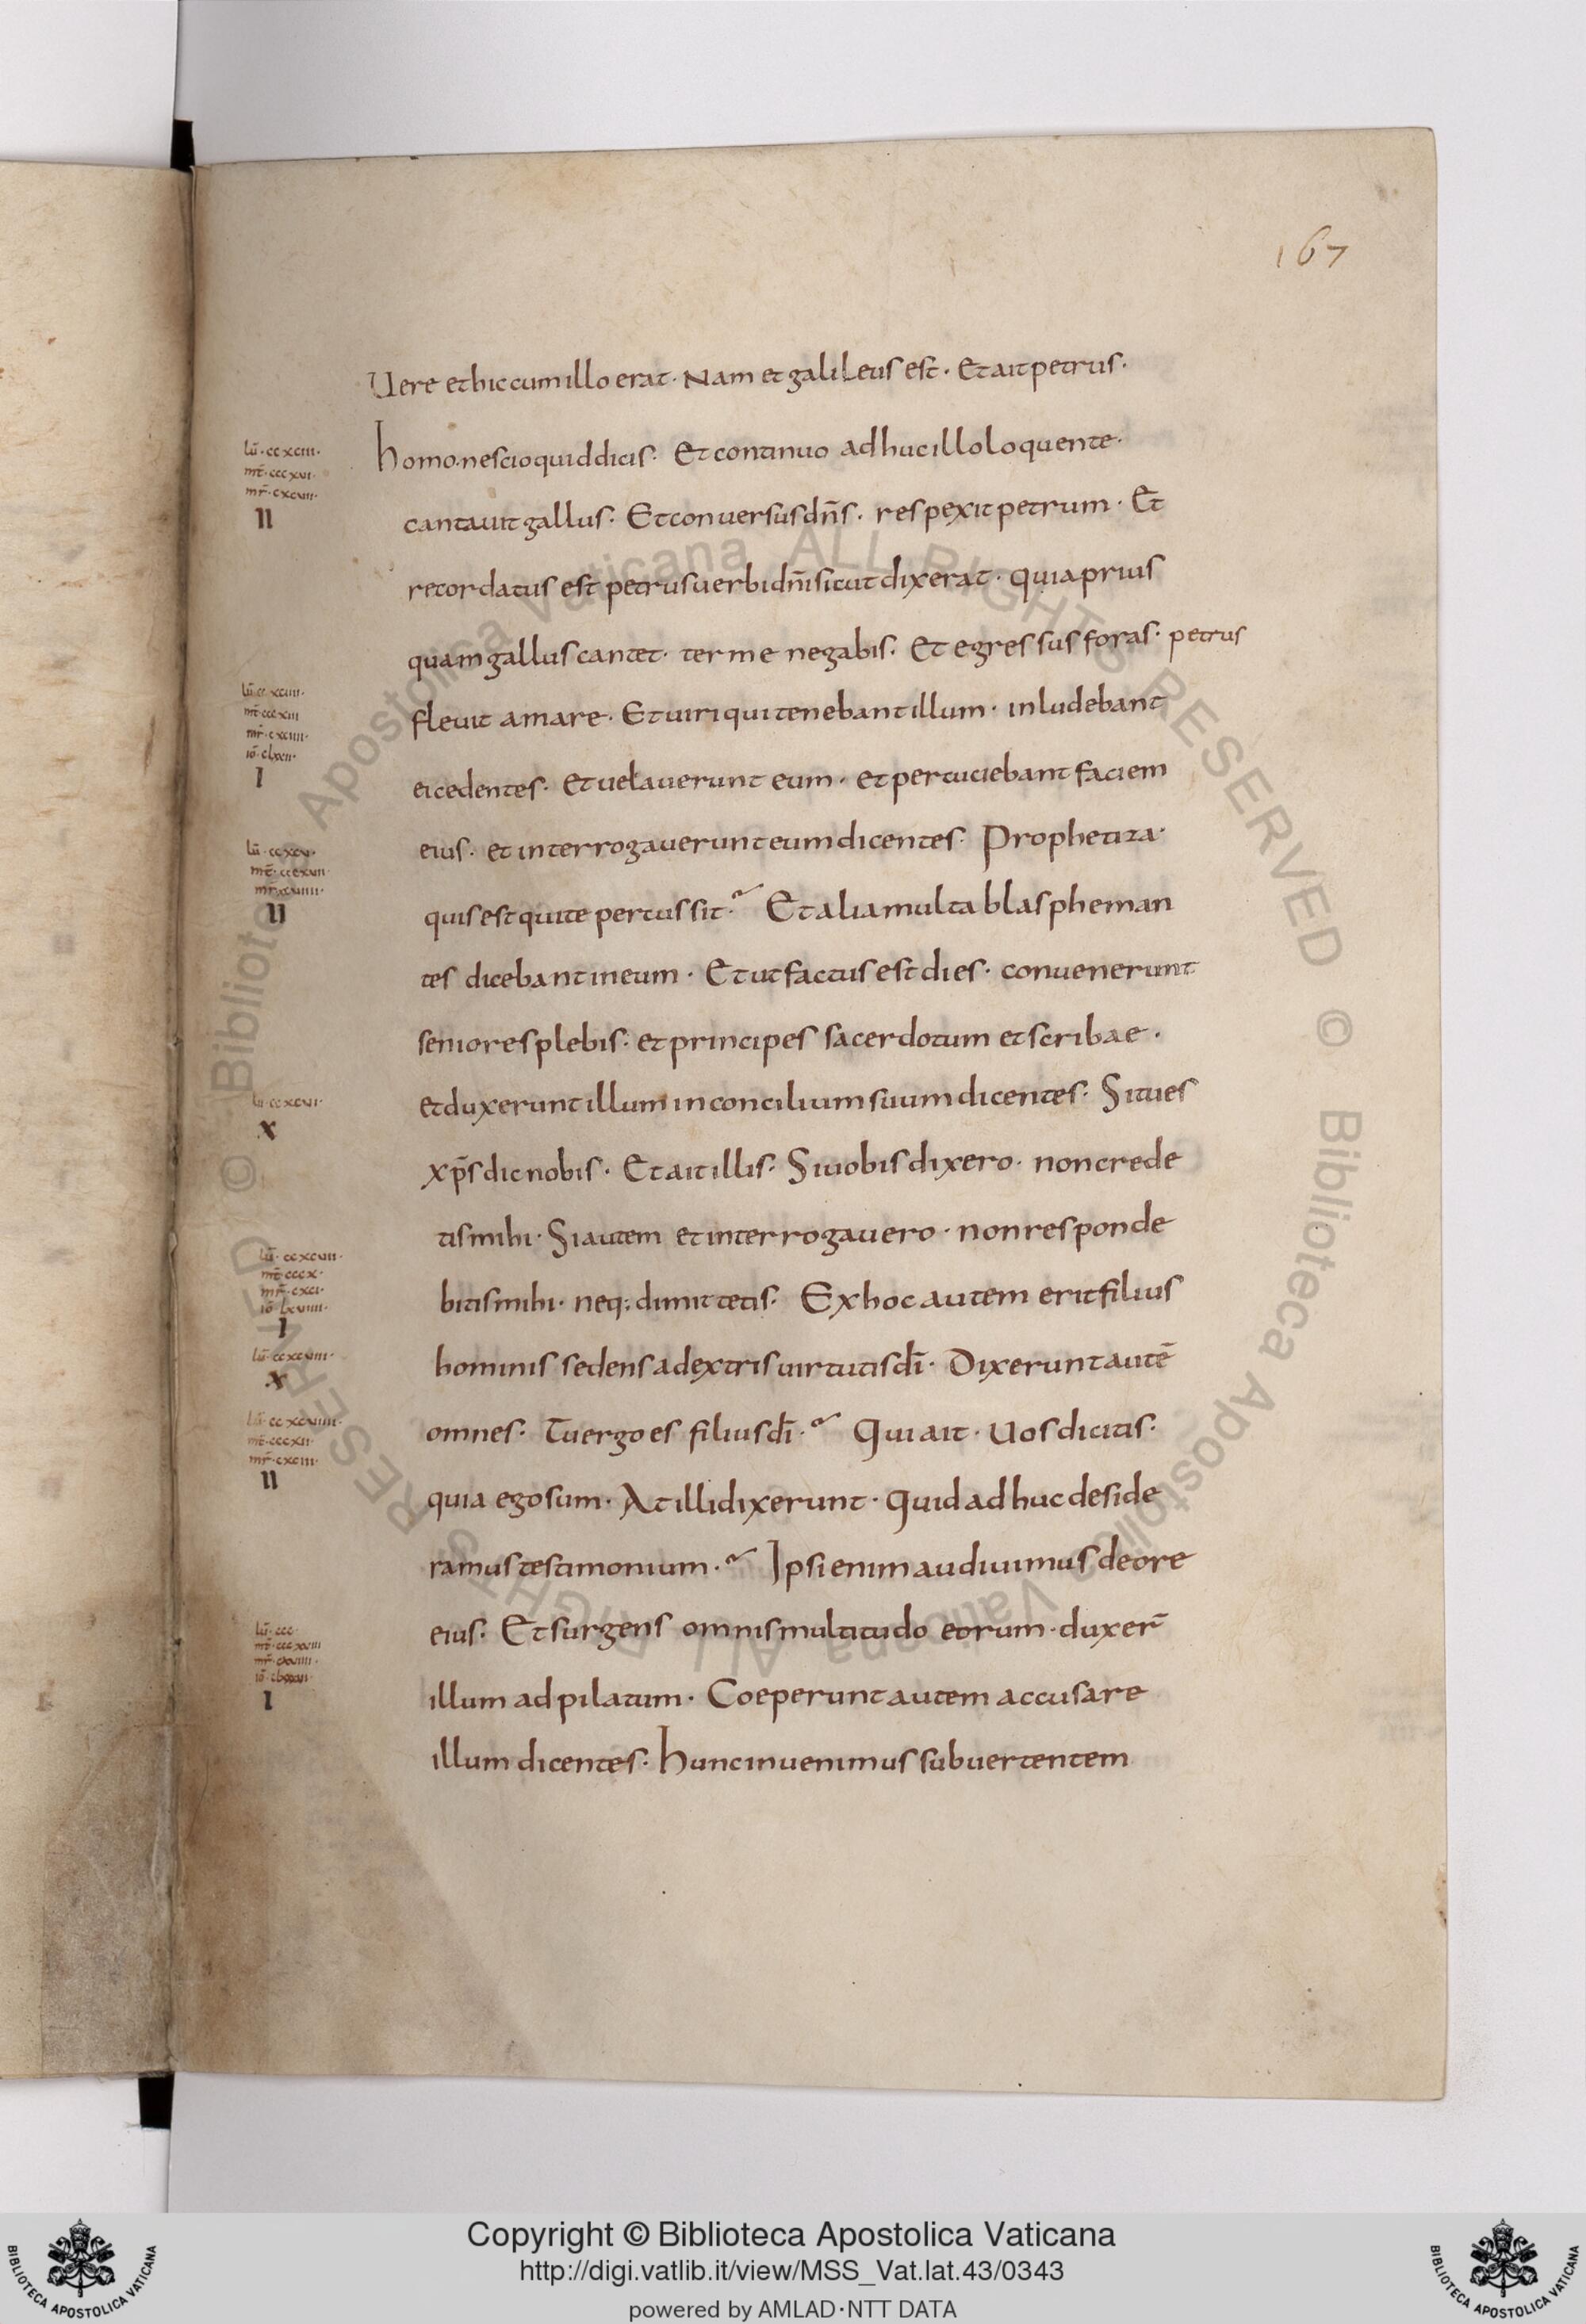 167
Uere et hic cum illo erat · Nam et galileus est · Et ait petrus ·
homo · nescio quid dicis · Et continuo adhuc illo loquente ·
lū · ccxciii ·
mt̄ · cccxvi ·
mr̄ · cxcvii ·
II
cantauit gallus · Et conuersus dn̄s · respexit petrum · Et
recordatus est petrus uerbi dn̄i sicut dixerat · quia prius
quam gallus cantet · ter me negabis · Et egressus foras · petrus
fleuit amare · Et uiri qui tenebant illum · inludebant
ei cedentes · Et uelauerunt eum · et percuciebant faciem
I
eius · et interrogauerunt eum dicentes · Prophetiza ·
quis est qui te percussit · Et alia multa blaspheman
II
tes dicebant in eum · Et ut factus est dies · conuenerunt
seniores plebis · et principes sacerdotum et scribae ·
et duxerunt illum in concilium suum dicentes · Si tu es
lū · ccxcvi ·
X
xp̄s dic nobis · Et ait illis · Si uobis dixero · non crede
tis mihi · Si autem et interrogauero · non responde
bitis mihi · neq; dimittetis · Ex hoc autem erit filius
lū · ccxcvii ·
mt̄ · cccx ·
mr̄ · cxci ·
iō · lxviiii ·
I
hominis sedens a dextris uirtutis dī · Dixerunt autē
lū · ccxcviii ·
X
omnes · Tu ergo es filius dī · Qui ait · Uos dicitis ·
lū · ccxcviiii ·
mt̄ · cccxii ·
mr̄ · cxciii ·
II
quia ego sum · At illi dixerunt · Quid adhuc deside
ramus testimonium · Ipsi enim audiuimus de ore
eius · Et surgens omnis multitudo eorum · duxer̄
lū · ccc ·
I
illum ad pilatum · Coeperunt autem accusare
illum dicentes · hunc inuenimus subuertentem
© Biblioteca Apostolica Vaticana ALL RIGHTS RESERVED © Biblioteca Apostolica Vaticana ALL RIGHTS RESERVED
Copyright © Biblioteca Apostolica Vaticana
http://digi.vatlib.it/view/MSS_Vat.lat.43/0343
powered by AMLAD·NTT DATA
BIBLIOTECA APOSTOLICA VATICANA
BIBLIOTECA APOSTOLICA VATICANA